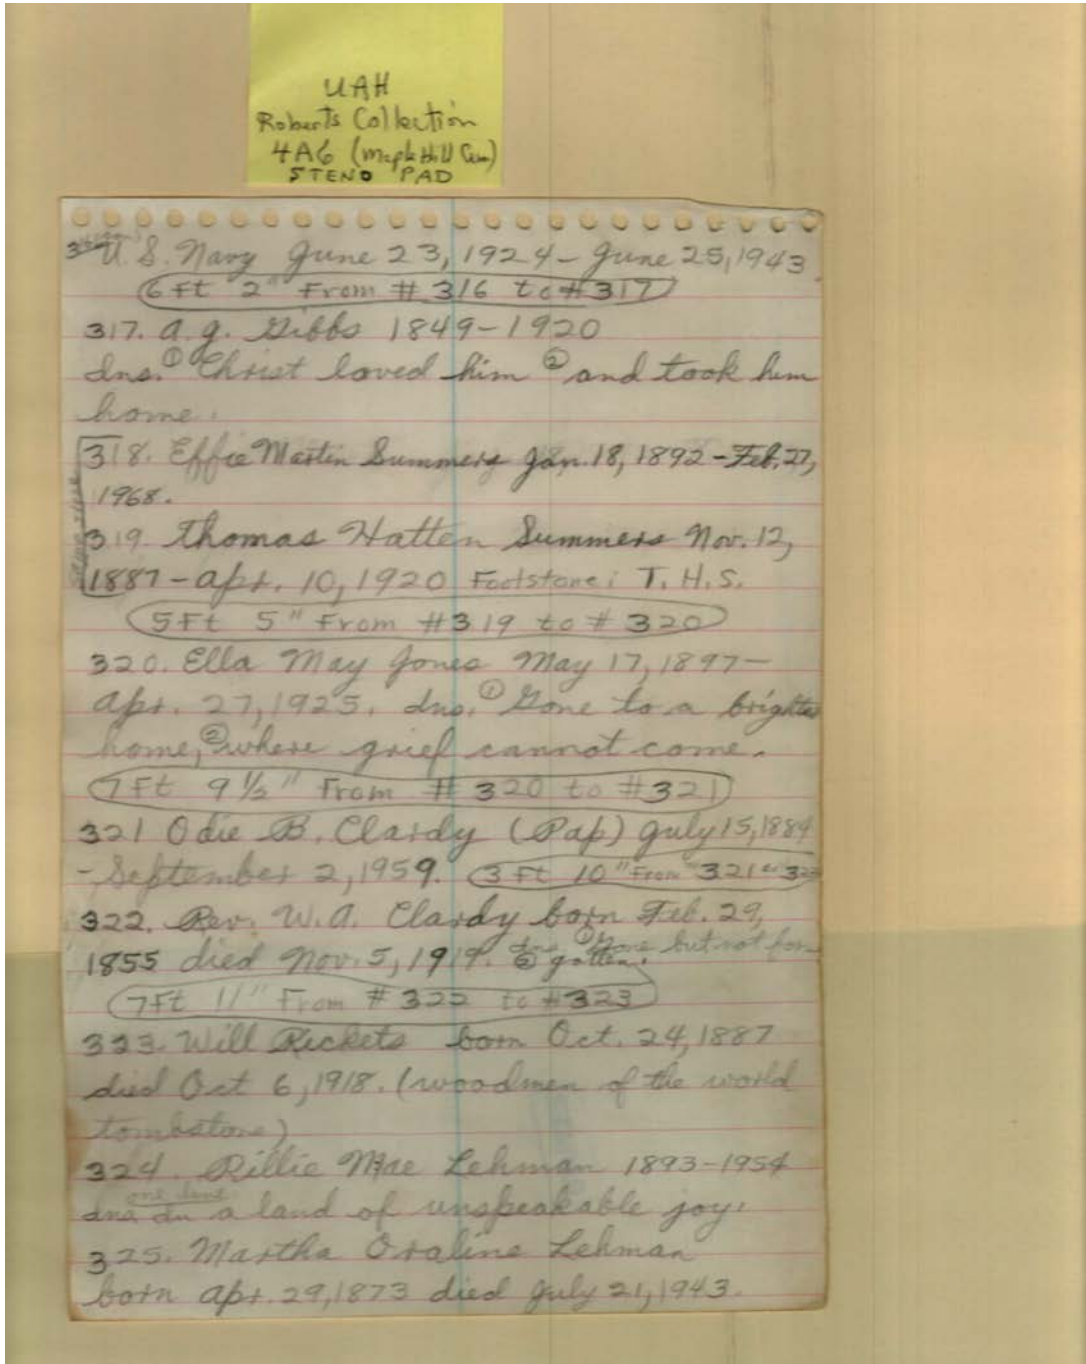 UAH
Roberts Collection
4A6 (Maple Hill Cem)
STENO PAD
U.S. Navy June 23, 1924 - June 25, 1943.
6 Ft 2" From # 316 to #317
317. A. G. Gibbs 1849-1920
Ins. ① Christ loved him ② and took him
home.
318. Effie Martin Summers Jan. 18, 1892 - Feb. 27,
1968.
319 Thomas Hatten Summers Nov. 12,
1887 - Apr. 10, 1920 Footstone: T. H. S.
5 Ft 5" From #319 to # 320
320. Ella May Jones May 17, 1897 -
Apr. 27, 1925. Ins. ① Gone to a brighter
home, ② where grief cannot come.
7 Ft 9 1/2" From # 320 to #321
321 Odie B. Clardy (Pap) July 15, 1884
- September 2, 1959. 3 Ft 10" From 321 to 322
322. Rev. W. A. Clardy born Feb. 29,
1855 died Nov. 5, 1919. Ins. ① Gone but not for-
② gotten.
7 Ft 11" From # 322 to #323
323. Will Rickets born Oct. 24, 1887
died Oct 6, 1918. (woodmen of the world
tombstone)
324. Rillie Mae Lehman 1893-1954
one line
Ins. In a land of unspeakable joy.
325. Martha Oraline Lehman
born Apr. 29, 1873 died July 21, 1943.